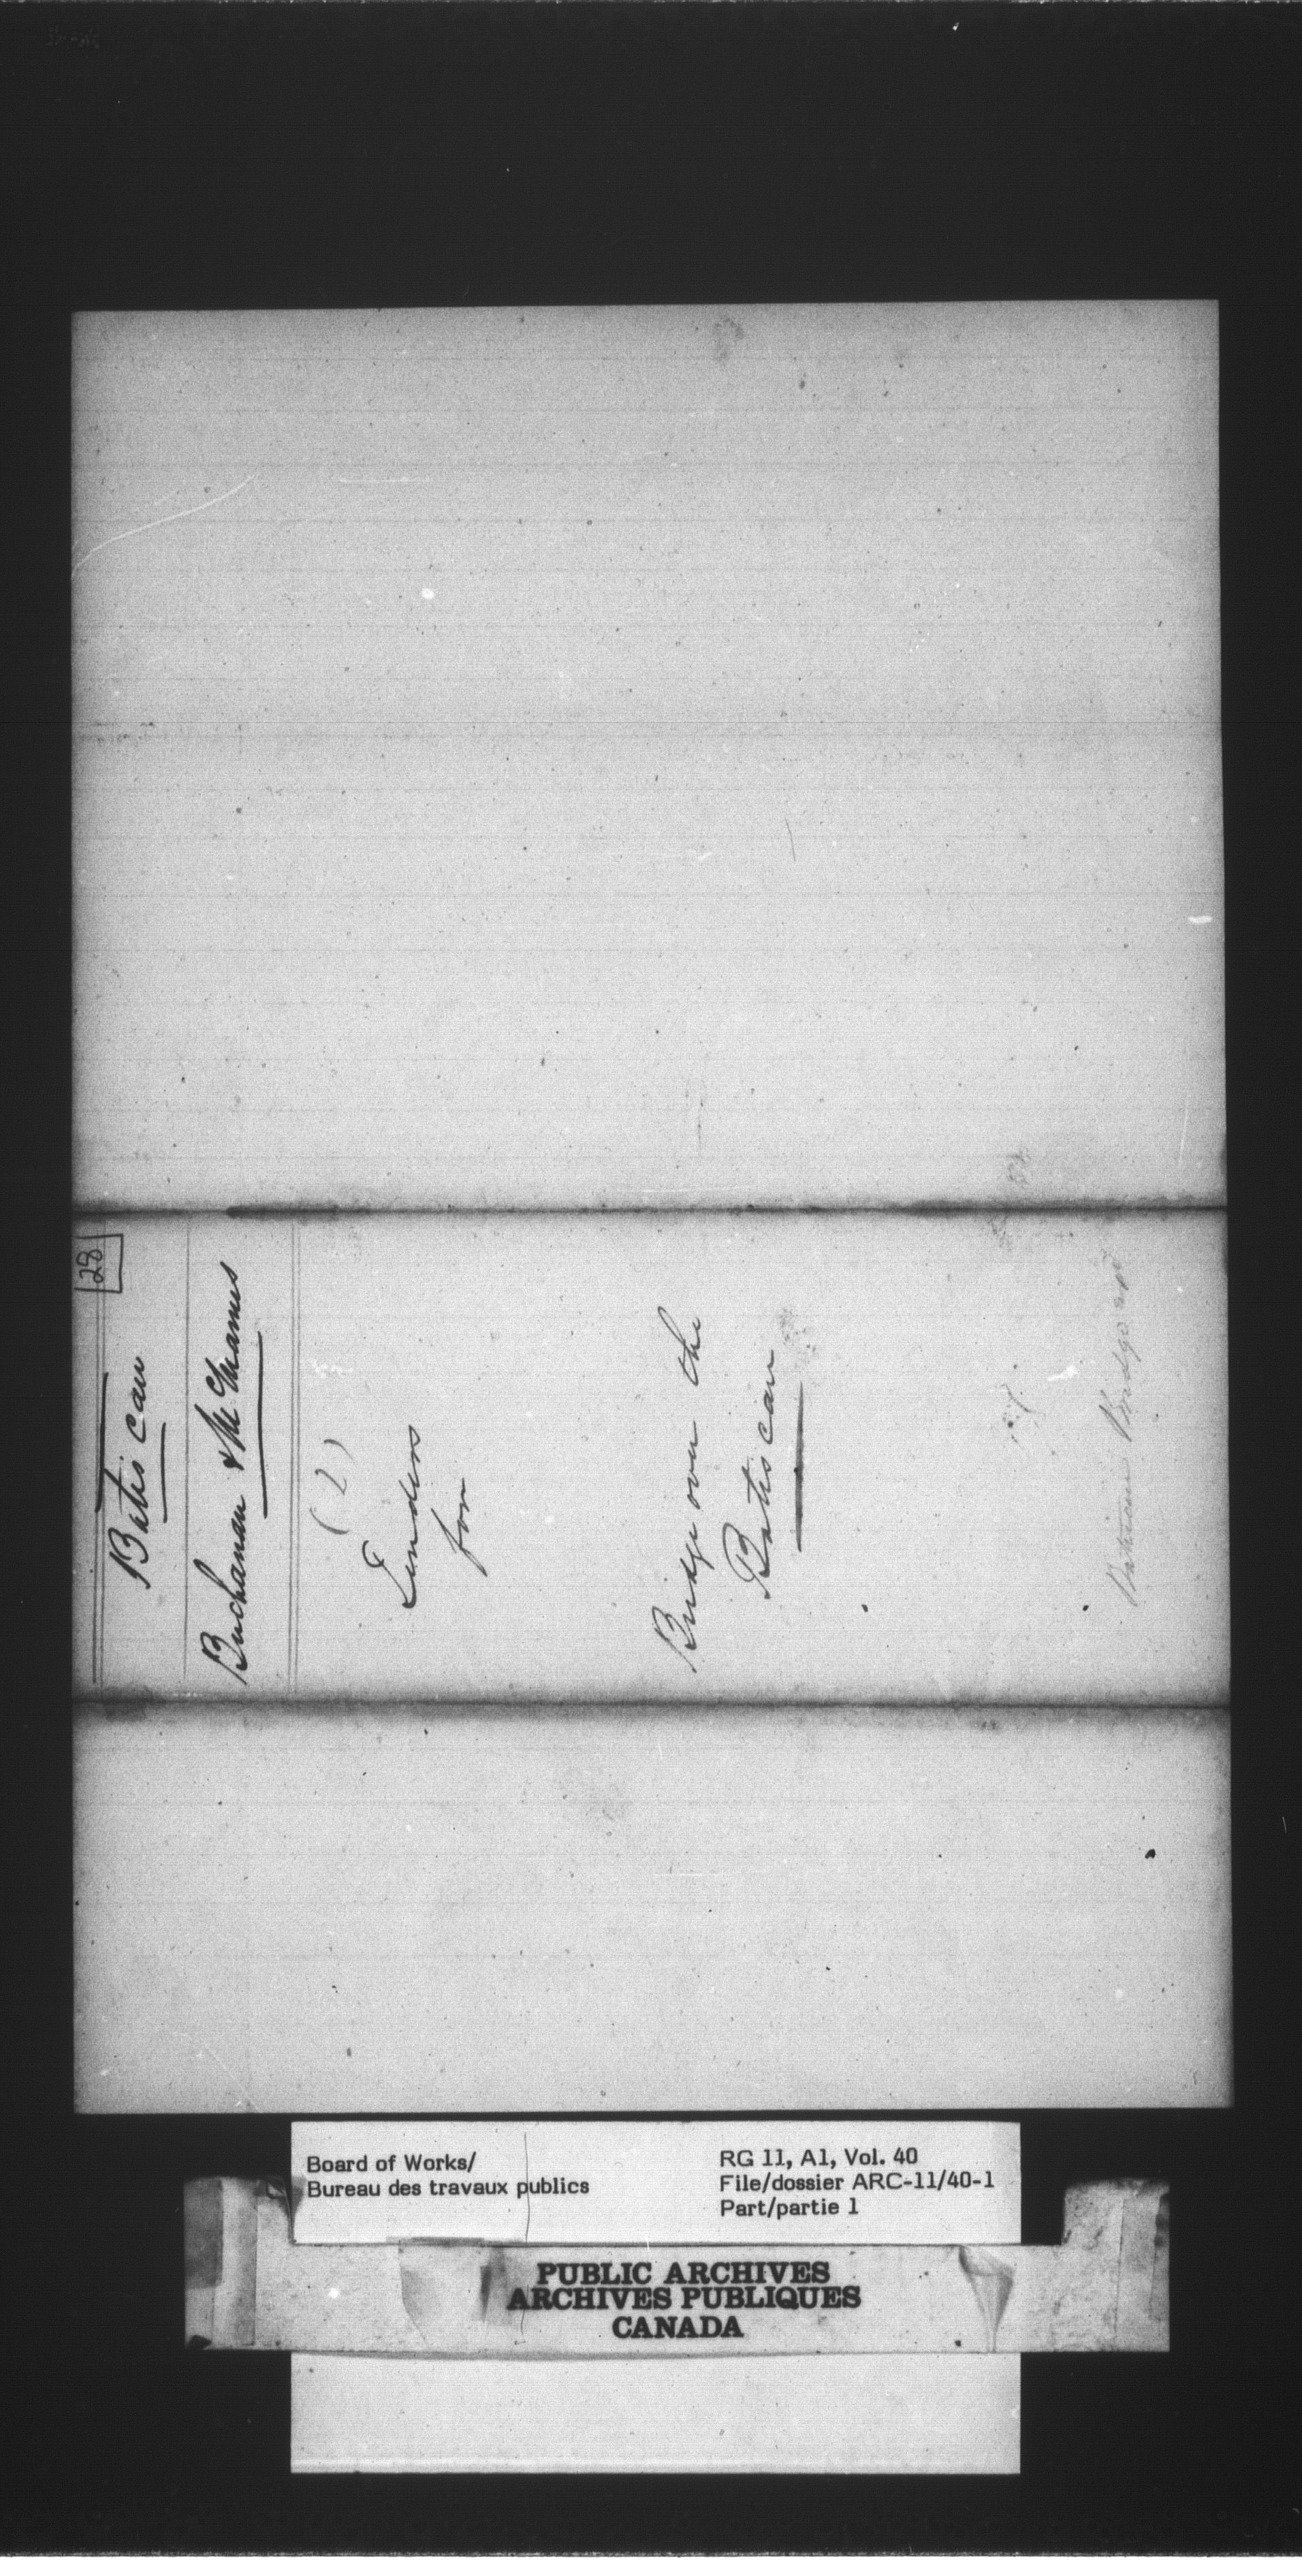 28
Batiscan
Buchanan & McManus
(2)
Tenders
for
Bridge over the
Batiscan
Bridge
Board of Works/
Bureau des travaux publics
RG 11, A1, Vol. 40
File/dossier ARC-11/40-1
Part/partie 1
PUBLIC ARCHIVES
ARCHIVES PUBLIQUES
CANADA